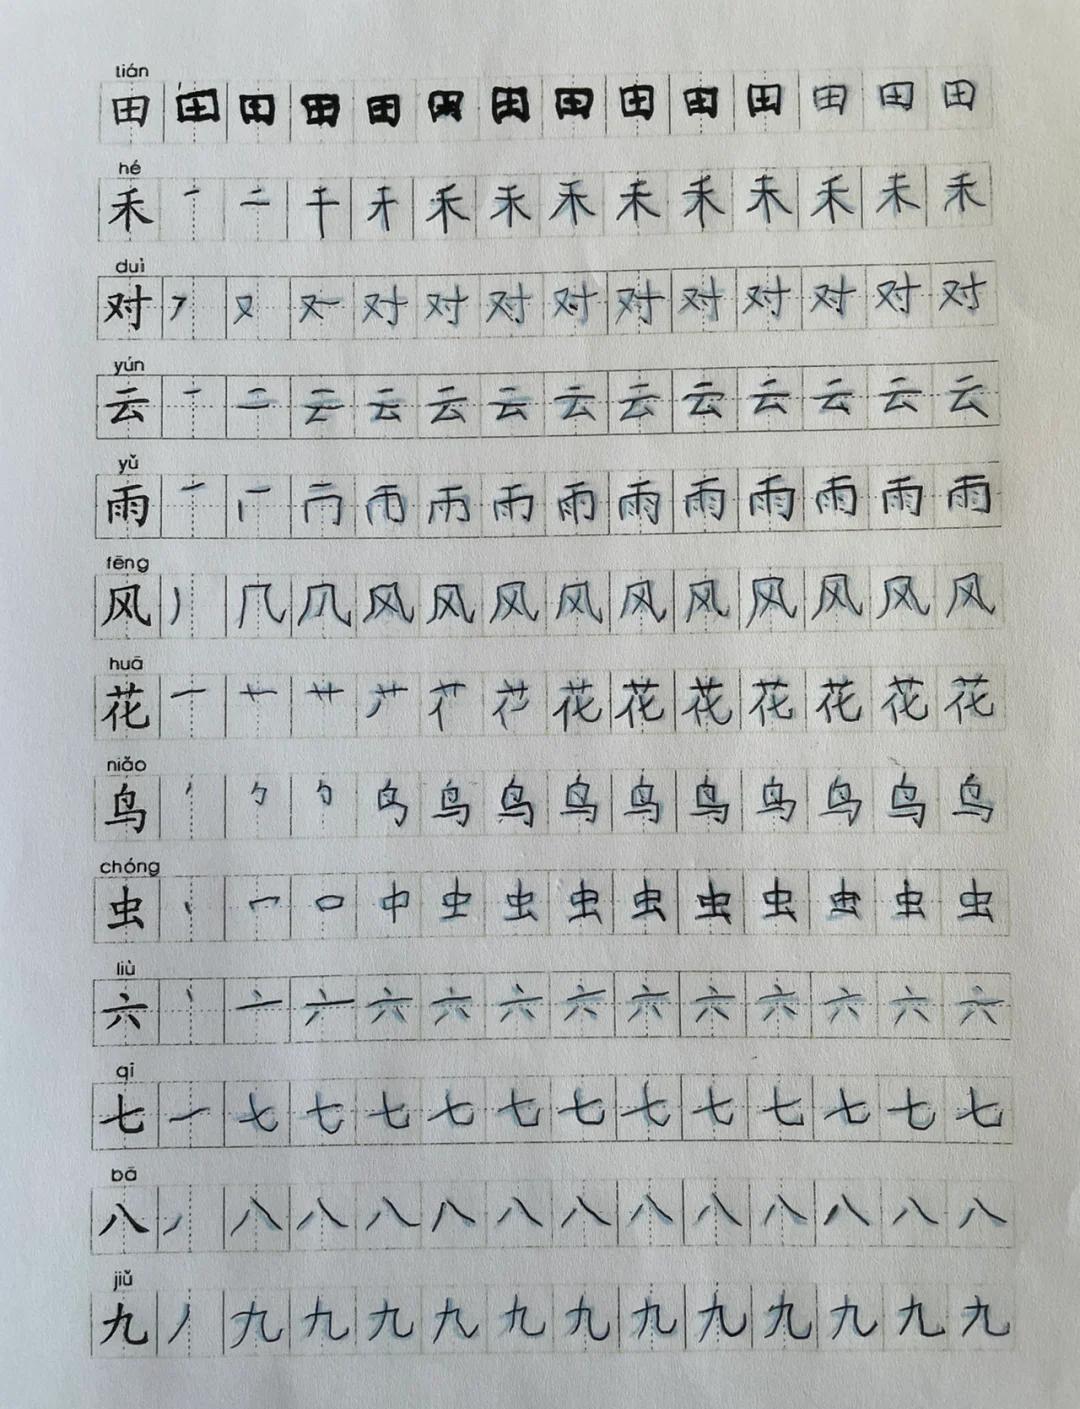 tián
田 田 田 田 田 田 田 田 田 田 田 田 田 田
hé
禾 ㇒ 二 千 禾 禾 禾 禾 禾 禾 禾 禾 禾
duì
对 ㇇ 又 对 对 对 对 对 对 对 对 对 对
yún
云 一 二 云 云 云 云 云 云 云 云 云 云 云
yǔ
雨 一 雨 雨 雨 雨 雨 雨 雨
fēng
风 丿 几 风 风 风 风 风 风 风 风 风 风
huā
花 一 十 艹 花 花 花 花 花 花 花
niǎo
鸟 鸟 鸟 鸟 鸟 鸟 鸟 鸟 鸟 鸟
chóng
虫 丨 口 中 虫 虫 虫 虫 虫 虫 虫 虫 虫
liù
六 丶 亠 六 六 六 六 六 六 六 六 六 六
qi
七 一 七 七 七 七 七 七 七 七 七 七 七 七
bā
八 丿 八 八 八 八 八 八 八 八 八 八 八 八
jiǔ
九 丿 九 九 九 九 九 九 九 九 九 九 九 九